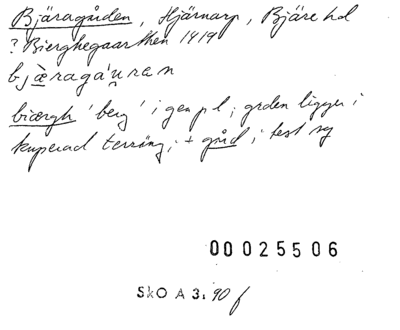 Bjäragården, Hjärnarp, Bjäre hd
? Bierghegaarthen 1419
bjæragáʼuran
biærgh 'berg' i gen pl; grden ligger i
kuperad terräng; + gård i best sg
00025506
SkO A 3: 90 f